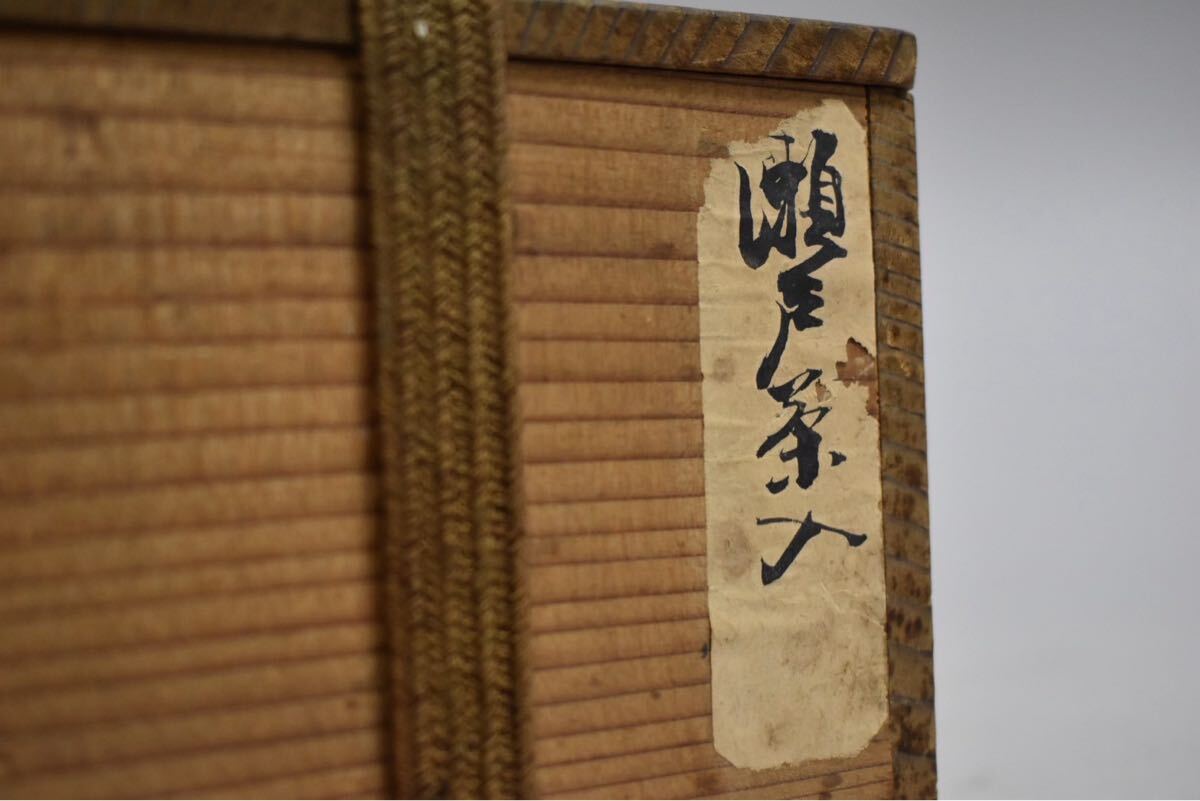 瀬戸茶入